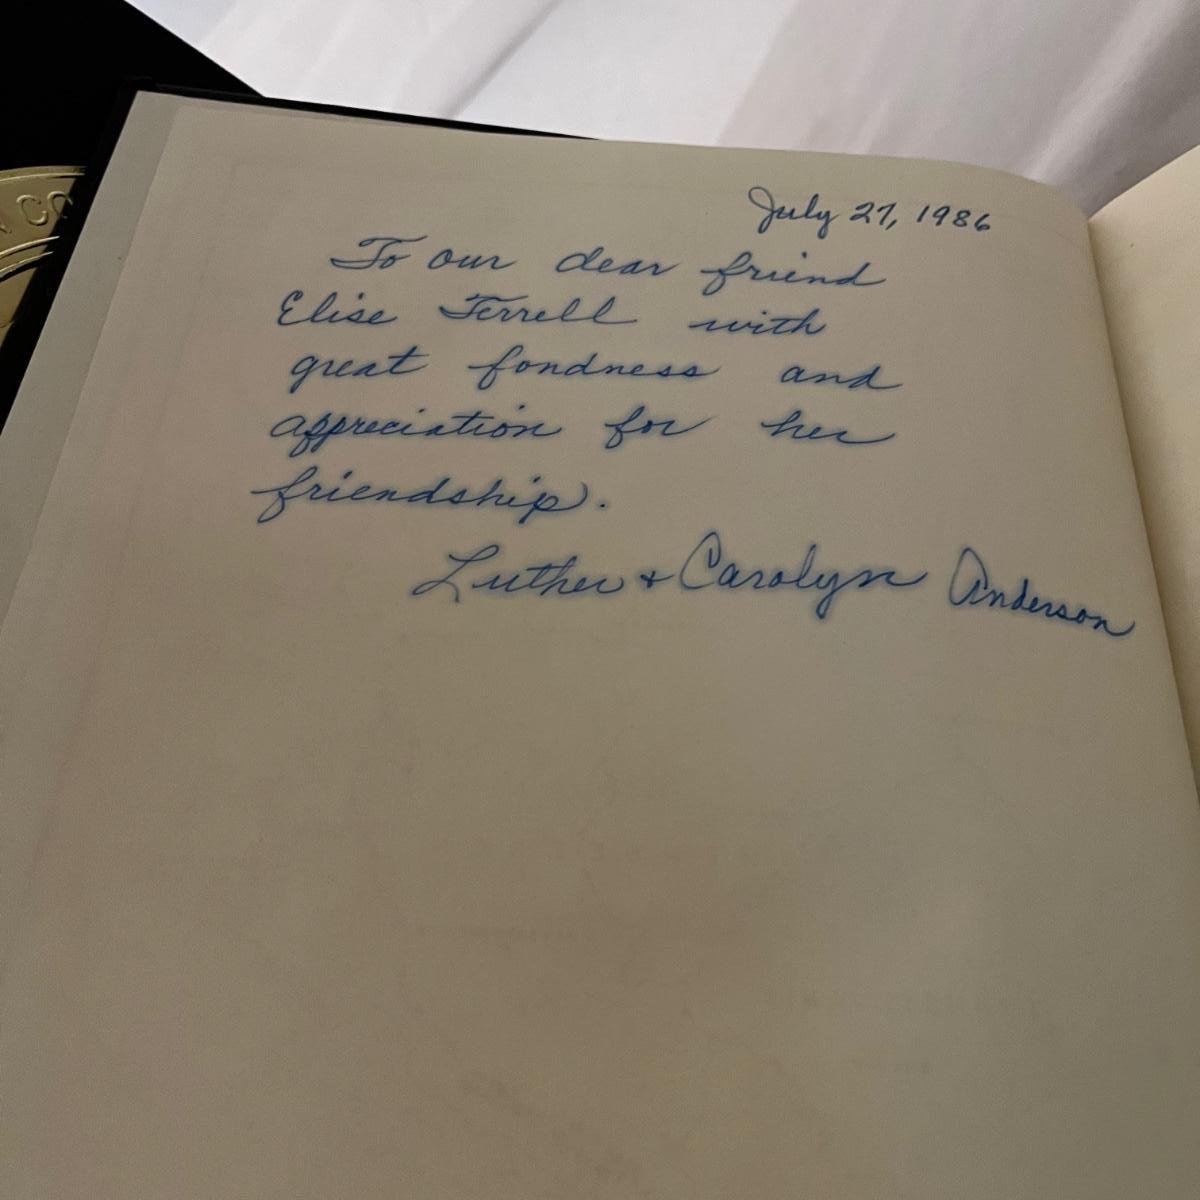 July 27, 1986
To our dear friend
Elise Terrell with
great fondness and
appreciation for her
friendship.
Luther & Carolyn Anderson